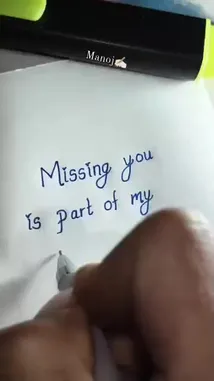 Manoj✍🏻
Missing you
is part of my